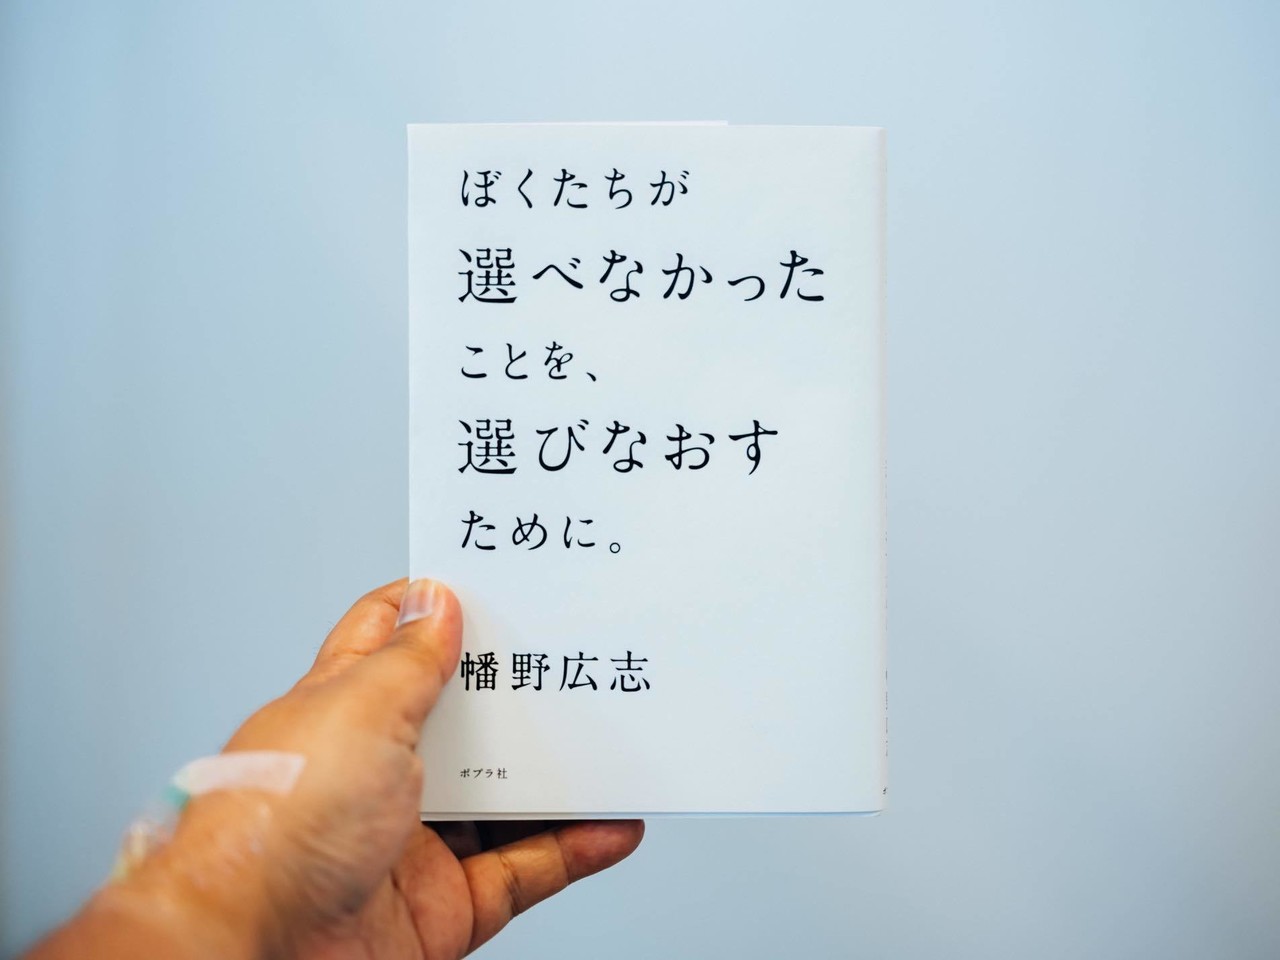 ぼくたちが
選べなかった
ことを、
選びなおす
ために。
幡野広志
ポプラ社